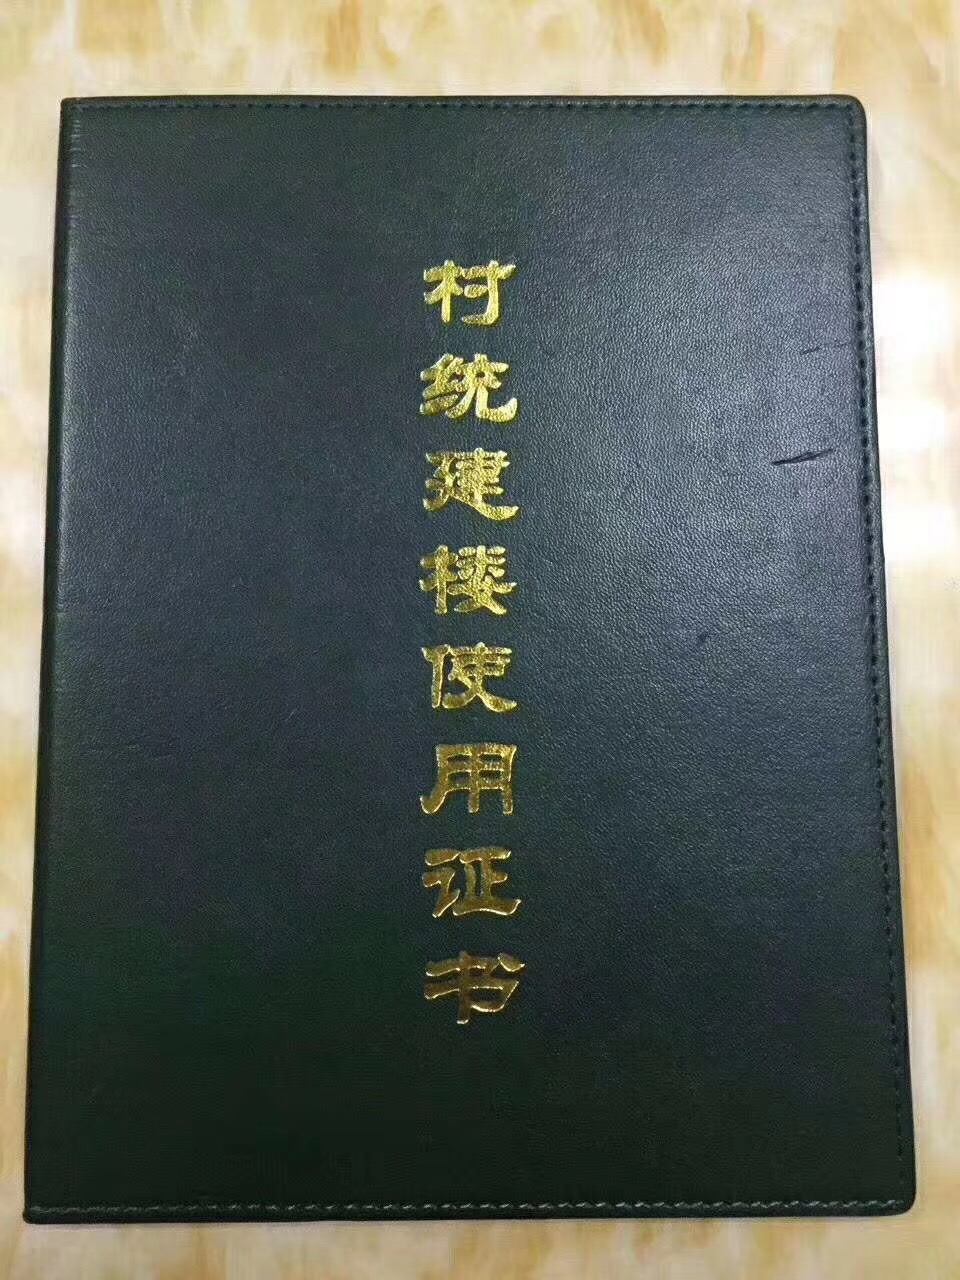 村统建楼使用证书